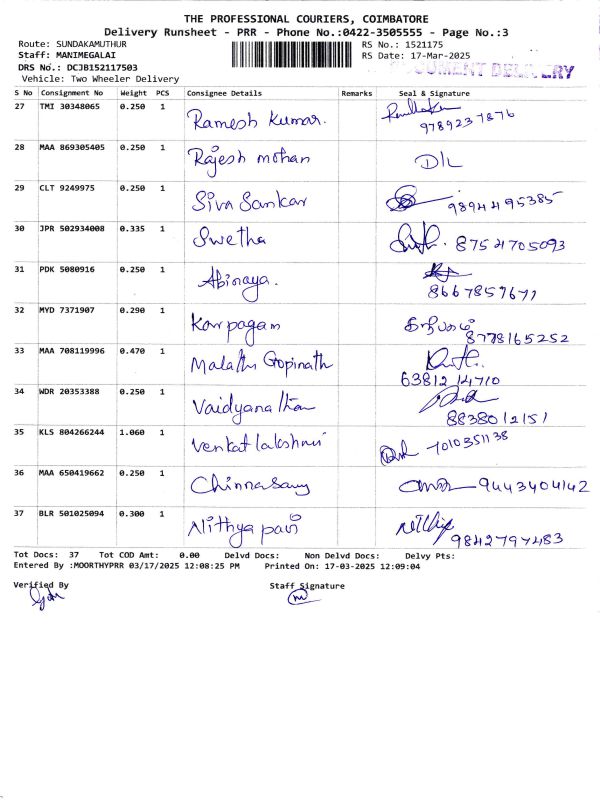 THE PROFESSIONAL COURIERS, COIMBATORE
Delivery Runsheet - PRR - Phone No.:0422-3505555 - Page No.:3
Route: SUNDAKAMUTHUR RS No.: 1521175
Staff: MANIMEGALAI RS Date: 17-Mar-2025
DRS No.: DCJB152117503 DOCUMENT DELIVERY
Vehicle: Two Wheeler Delivery
S No Consignment No Weight PCS Consignee Details Remarks Seal & Signature
27 TMI 30348065 0.250 1 Ramesh Kumar. 9789237876
28 MAA 869305405 0.250 1 Rajesh mohan D/L
29 CLT 9249975 0.250 1 Siva Sankar 9894495385
30 JPR 502934008 0.335 1 Swetha 8754705093
31 PDK 5080916 0.250 1 Abinaya. 8667857677
32 MYD 7371907 0.290 1 Karpagam கற்பகம் 8778165252
33 MAA 708119996 0.470 1 Malathi Gopinath 6381214710
34 WDR 20353388 0.250 1 Vaidyanathan 8838012151
35 KLS 804266244 1.060 1 Venkat lakshmi 7010351138
36 MAA 650419662 0.250 1 Chinnasamy 9443404142
37 BLR 501025094 0.300 1 Nithya pari 9842797483
Tot Docs: 37 Tot COD Amt: 0.00 Delvd Docs: Non Delvd Docs: Delvy Pts:
Entered By :MOORTHYPRR 03/17/2025 12:08:25 PM Printed On: 17-03-2025 12:09:04
Verified By Staff Signature